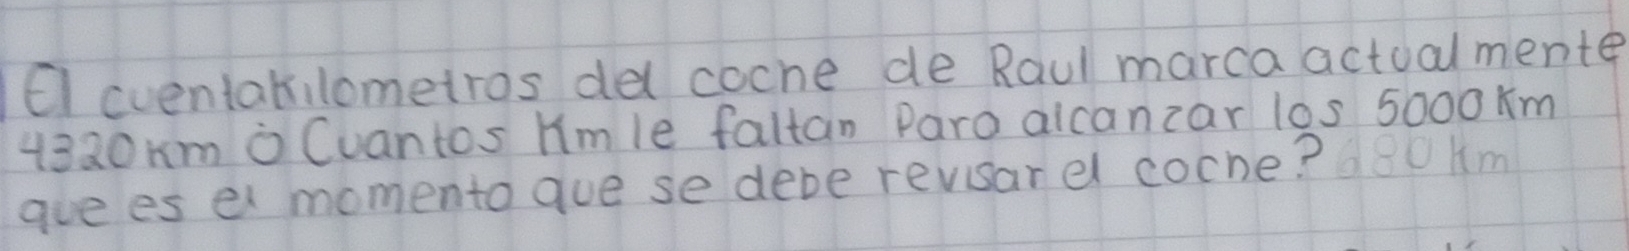 El cuentakilometros del coche de Raul marca actualmente
4320 km ¿Cuantos Km le faltan para alcanzar los 5000 Km
que es el momento que se debe revisar el coche? 680 Km